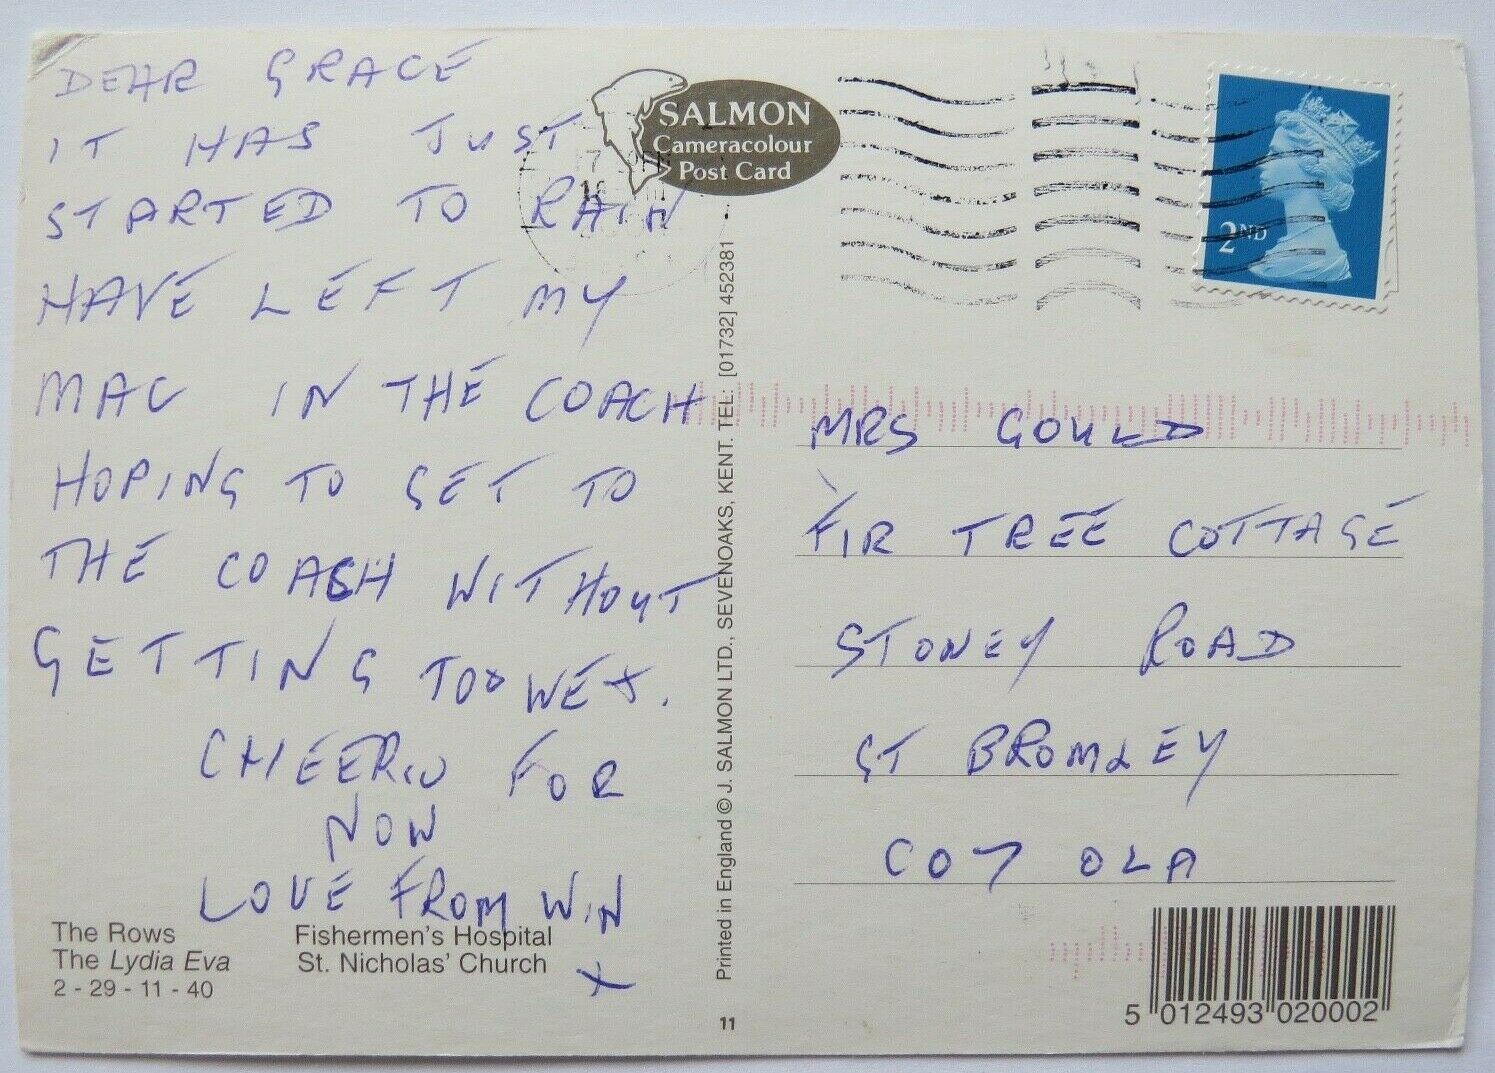 DEAR GRACE
IT HAS JUST
STARTED TO RAIN
HAVE LEFT MY
MAC IN THE COACH
HOPING TO GET TO
THE COACH WITHOUT
GETTING TOO WET.
CHEERIO FOR
NOW
LOVE FROM WIN
X
The Rows
The Lydia Eva
2 - 29 - 11 - 40
Fishermen's Hospital
St. Nicholas' Church
SALMON
Cameracolour
Post Card
Printed in England © J. SALMON LTD., SEVENOAKS, KENT. TEL: [01732] 452381
11
2ND
MRS GOULD
FIR TREE COTTAGE
STONEY ROAD
ST BROMLEY
CO7 OLA
5 012493 020002